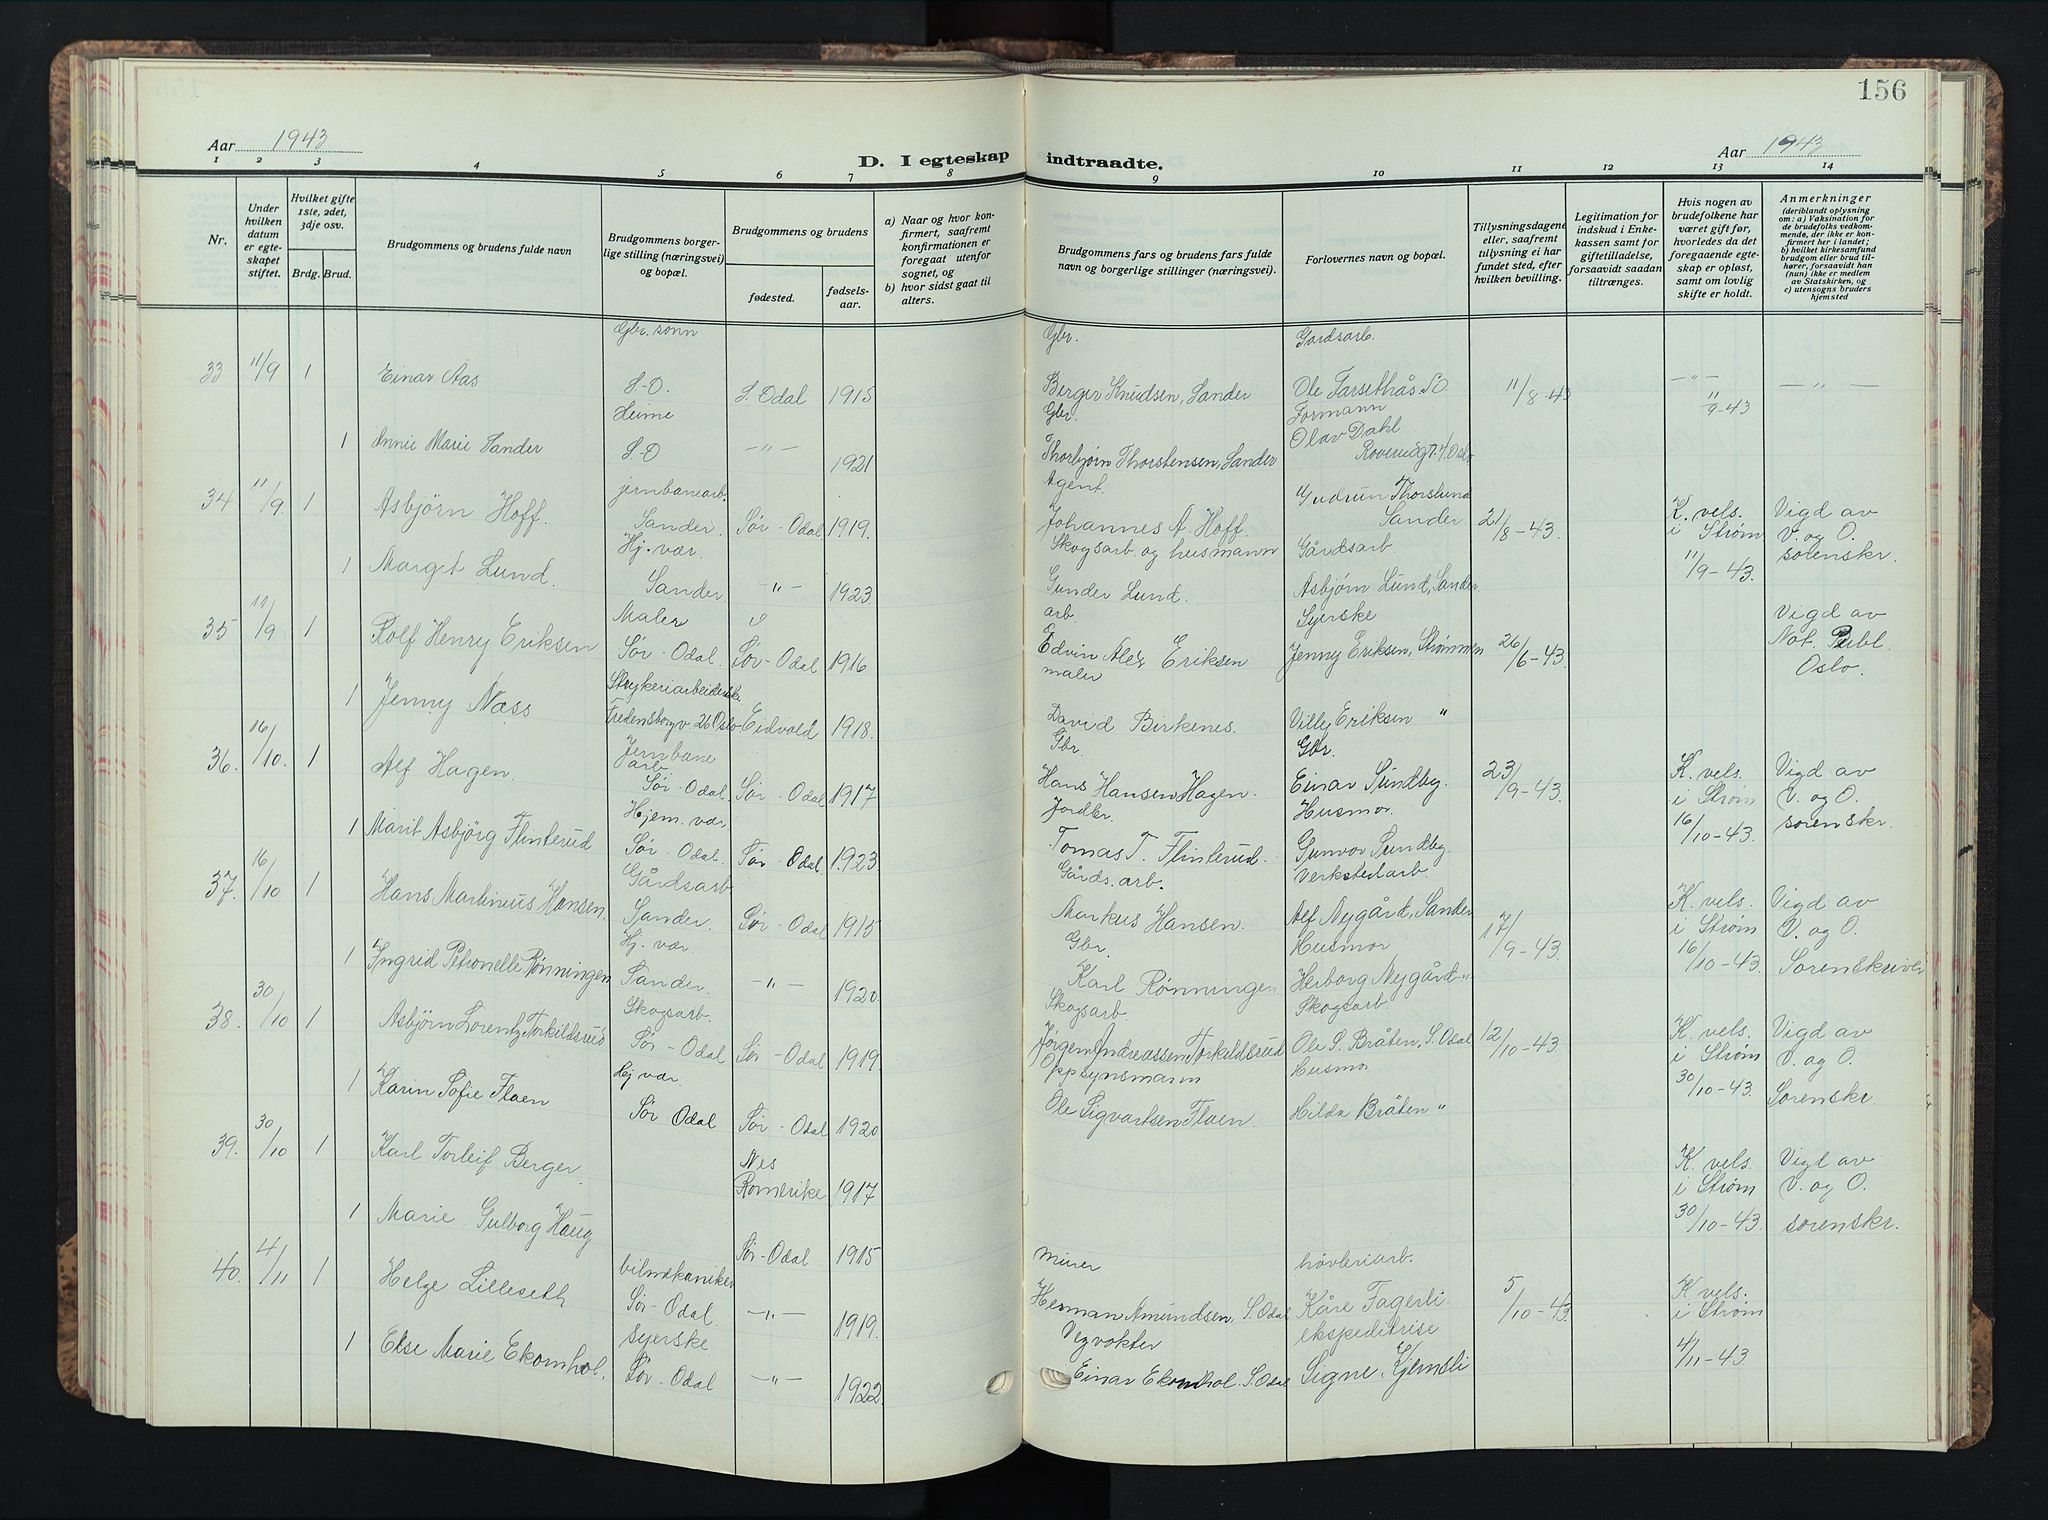 156
Aar 1943
D. I egteskap indtraadte.
Aar 1943
1 2 3 4 5 6 7 8 9 10 11 12 13 14
Nr.
Under hvilken datum er egteskapet stiftet.
Hvilket gifte 1ste, 2det, 3dje osv.
Brdg. Brud.
Brudgommens og brudens fulde navn
Brudgommens borgerlige stilling (næringsvei) og bopæl.
Brudgommens og brudens
fødested.
fødselsaar.
a) Naar og hvor konfirmert, saafremt konfirmationen er foregaat utenfor sognet, og
b) hvor sidst gaat til alters.
Brudgommens fars og brudens fars fulde navn og borgerlige stillinger (næringsvei).
Forlovernes navn og bopæl.
Tillysningsdagene eller, saafremt tillysning ei har fundet sted, efter hvilken bevilling.
Legitimation for indskud i Enkekassen samt for giftetilladelse, forsaavidt saadan tiltrænges.
Hvis nogen av brudefolkene har været gift før, hvorledes da det foregaaende egteskap er opløst, samt om lovlig skifte er holdt.
Anmerkninger
(deriblandt oplysning om: a) Vaksination for de brudefolks vedkommende, der ikke er konfirmert her i landet; b) hvilket kirkesamfund brudgom eller brud tilhører, forsaavidt han (hun) ikke er medlem av Statskirken, og c) utensogns bruders hjemsted
Gbr. sønn Gbr. Gårdsarb.
33 11/9 1 Einar Aas S.-O. S. Odal 1915 Berger Knudsen, Sander Ole Farsethås S.O. 11/8-43 —"— —"—
Heime Gbr. Formann 11/9-43
1 Annie Marie Sander S.-O —"— 1921 Thorbjørn Thorstensen, Sander Olav Dahl
Oslo
jernbanearb. Agent. Gudrun Thorslund
34 11/9 1 Asbjørn Hoff. Sander. Sør-Odal 1919. Johannes A. Hoff. Sander 21/8-43. K. vels. i Strøm 11/9-43. Vigd av V. og O. sorenskr.
Hj. vær. Skogsarb. og husmann Gårdsarb.
1 Margit Lund. Sander. —"— 1923. Gunder Lund. Asbjørn Lund, Sander
Maler arb. Syerske
35 11/9 1 Rolf Henry Eriksen Sør-Odal. Sør-Odal 1916 Edvin Alex Eriksen Jenny Eriksen, Strømmen 26/6-43. Vigd av Not. Publ. Oslo.
Strykeriarbeiderske maler
1 Jenny Næss Fredensborgv. 26 Oslo Eidvold 1918. David Birkenes. Villy Eriksen "
Jernbane arb Gbr. Gbr.
36. 16/10. 1 Alf Hagen. Sør-Odal. Sør-Odal 1917 Hans Hansen Hagen. Einar Sundby. 23/9-43. K. vels. i Strøm 16/10-43. Vigd av V. og O. sorenskr.
Hjem. vær. Jordbr. Husmor
1 Marit Asbjørg Flinterud Sør-Odal. Sør-Odal 1923 Tomas T. Flinterud. Gunvor Sundby.
Gårdsarb Gårds.arb. Verkstedarb.
37. 16/10 1 Hans Martinius Hansen. Sander. Sør-Odal 1915 Markus Hansen. Alf Nygård, Sander 17/9-43. K. vels. i Strøm 16/10-43. Vigd av V. og O. Sorenskriver
Hj. vær. Gbr. Husmor
1 Ingrid Petronelle Rønningen Sander. —"— 1920. Karl Rønningen Herborg Nygård "
Skogsarb. Skogsarb. Skogsarb.
38. 30/10 1 Asbjørn Lorentz Torkildsrud Sør-Odal Sør-Odal 1919. Jørgen Andreassen Torkildsrud Ole S. Bråten, S. Odal 12/10-43. K. vels. i Strøm 30/10-43. Vigd av V. og O. Sorenskr.
Hj vær. Oppsynsmann Husmor
1 Karin Sofie Floen Sør Odal Sør-Odal 1920 Ole Sigvartsen Floen. Hilda Bråten "
39. 30/10 1 Karl Torleif Berger Nes Romerike 1917 K. vels. i Strøm 30/10-43. Vigd av V. og O. sorenskr.
1 Marie Gulborg Haug Sør-Odal 1915
bilmekaniker murer høvleriarb.
40. 4/11 1 Helge Lilleseth Sør-Odal. —"— 1919. Herman Amundsen, S. Odal Kåre Fagerli. 5/10-43. K vels. i Strøm 4/11-43.
syerske Vegvokter ekspeditrise
1 Else Marie Ekornhol. Sør-Odal —"— 1922 Einar Ekornhol. S. Odal Signe Kjernsli